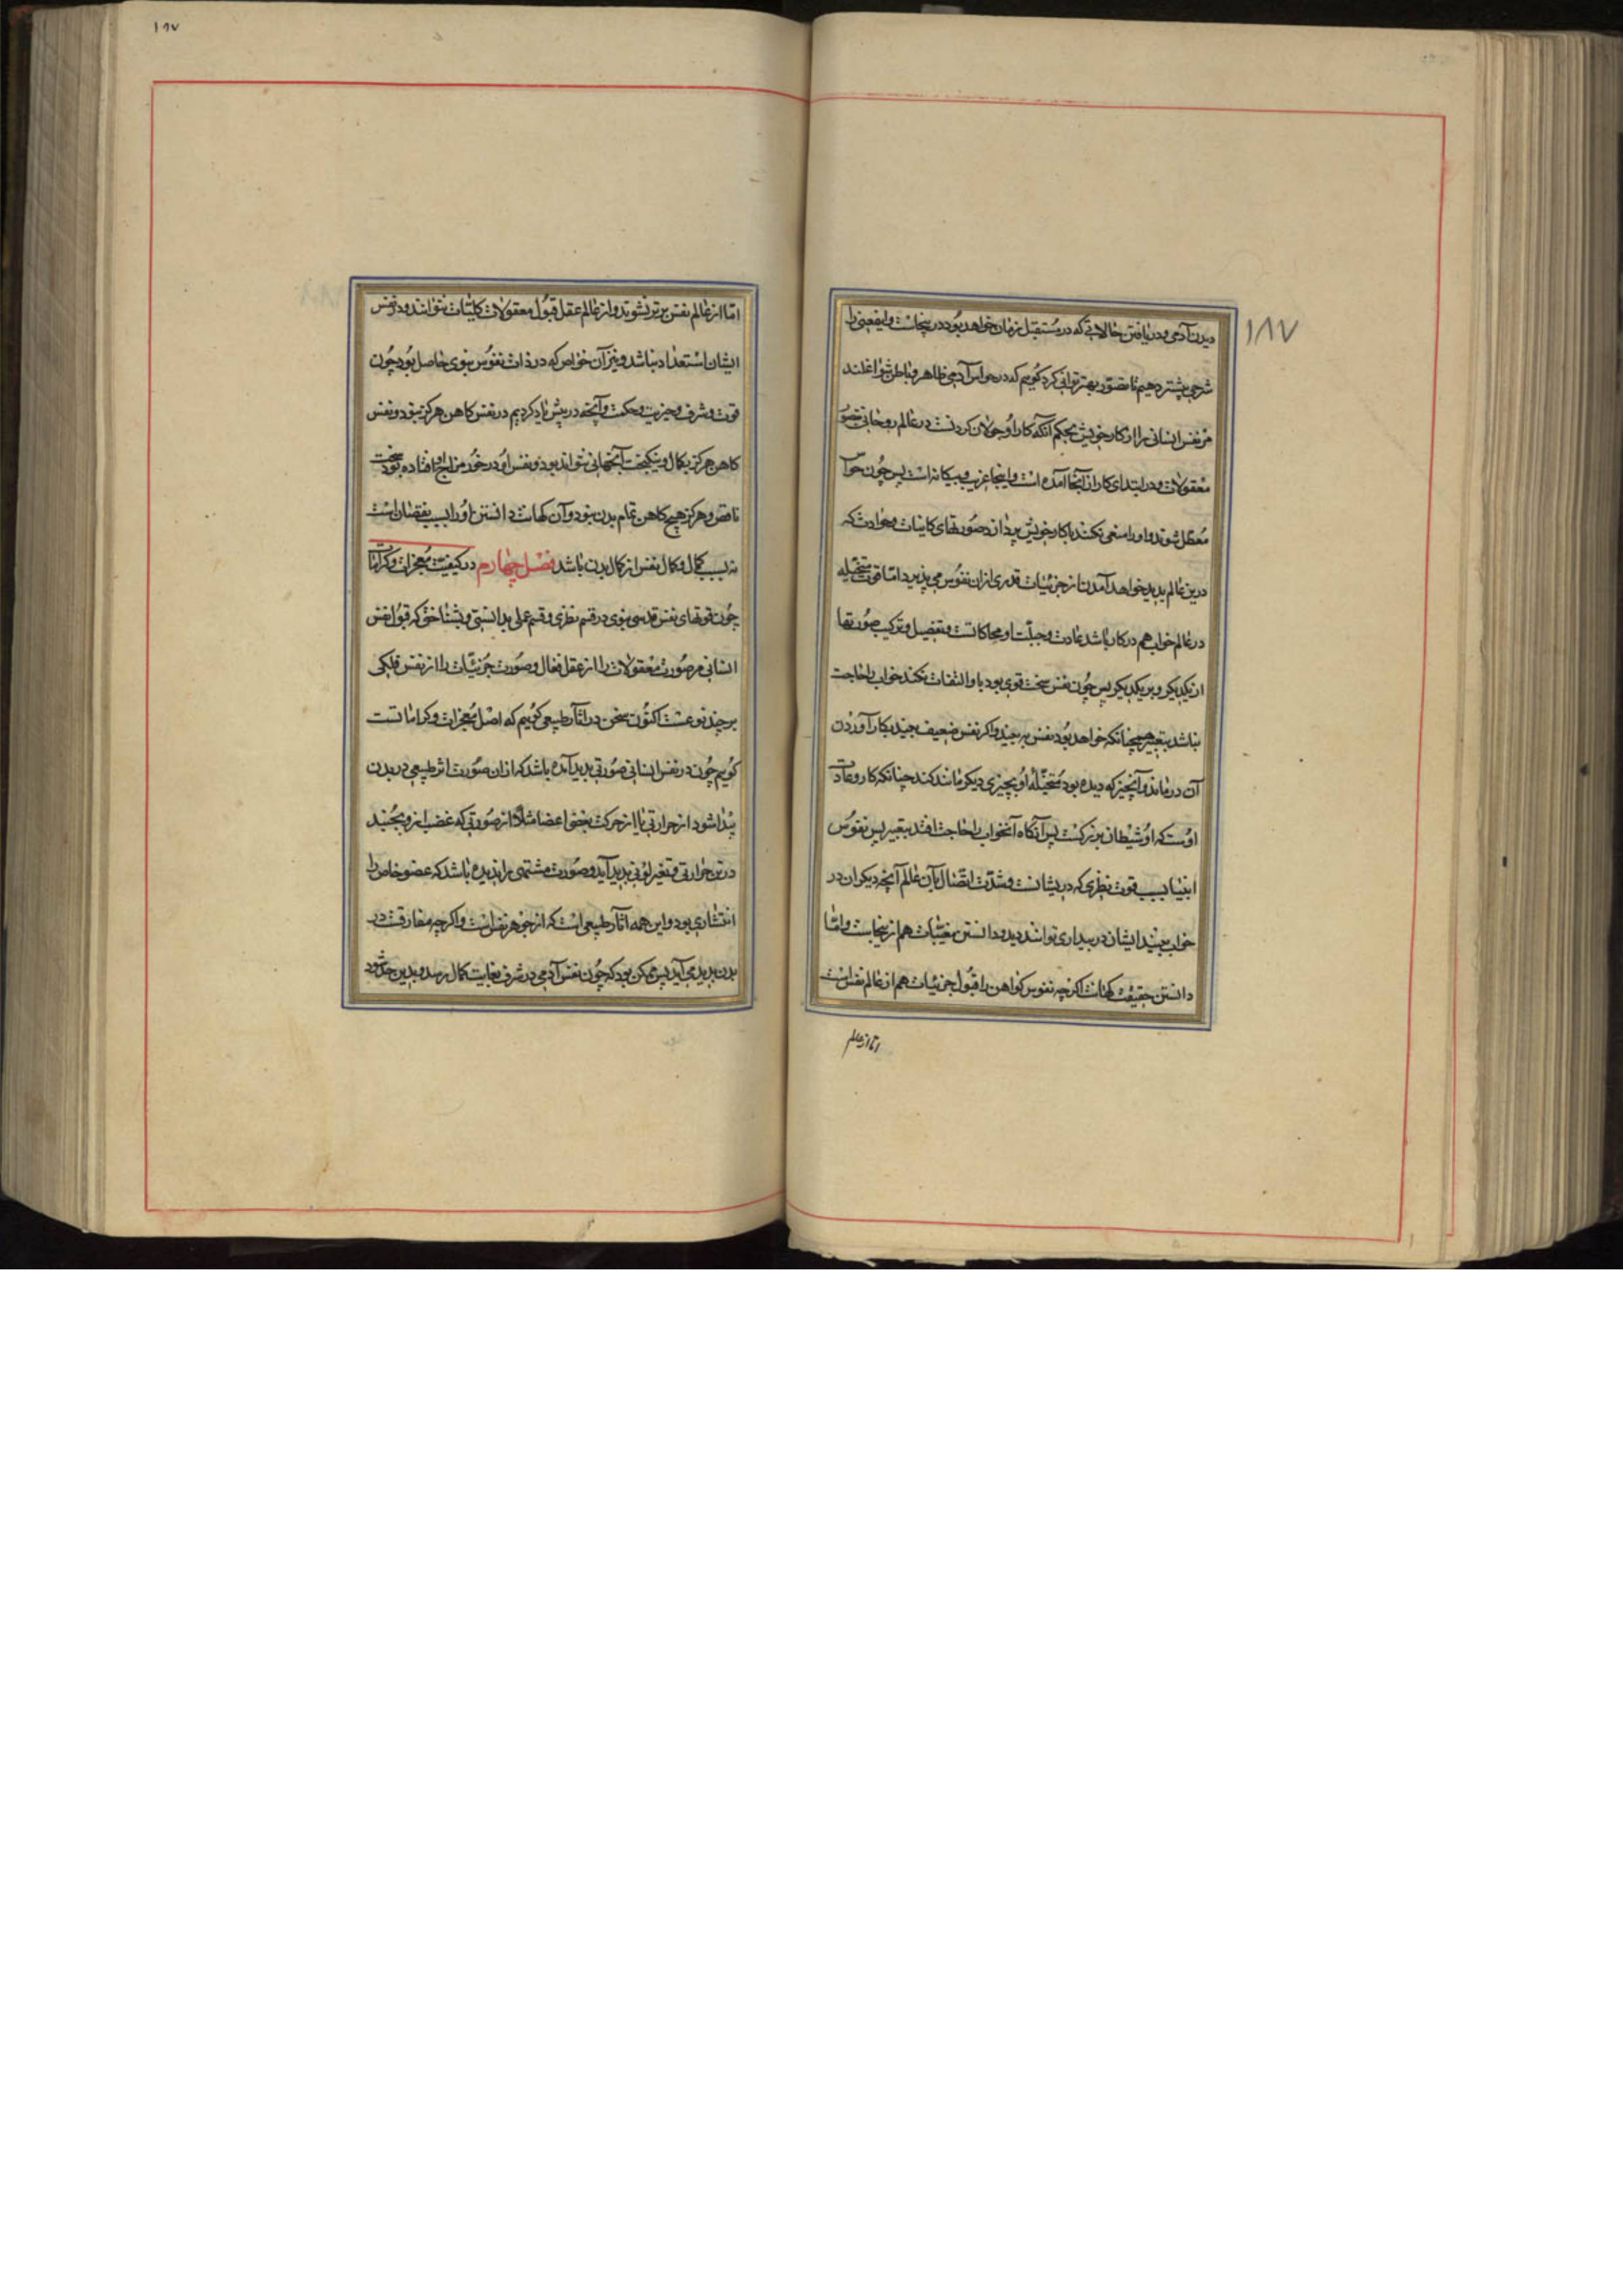 ۱۸۷
دیدن آدمی و دریافتن حالاتی که در مستقبل زمان خواهد بود در پنجاست و این معنی را
شرحی بیشتر دهیم تا تصور بهتر توانی کرد گوییم که در حواس آدمی ظاهر و باطن شواغلند
مر نفس انسانی را از کار خویش بحکم آنکه کار او جولان کردنست در عالم روحانی تصور
معقولات و در ابتدای کار از آنجا آمده است و اینجا غریب و بیکانه است پس چون حواس
معطل شوند و او را منع نکنند با کار خویش پردازد صورتهای کاینات و حوادث که
درین عالم پدید خواهد آمدن از جزئیات قدری ازان نفوس می پذیرد اما قوت متخیله
در عالم خواب هم در کار باشد عادت و جبلت او محاکاتست و تفصیل و ترکیب صورتها
از یکدیکر و بر یکدیکر پس چون نفس سخت قوی بود باو التفات نکند خواب را حاجت
نباشد بتعبیر همچنانکه خواهد بود نفس به بیند و اکر نفس ضعیف بیند بکار آوردن
آن درماند و آنچیز که دیده بود متخیله او بچیزی دیکر مانند کند چنانکه کار و عادت
اوست که او شیطان بزرکست پس آنکاه آنخواب را حاجت افتد بتعبیر پس نفوس
انبیا بسبب قوت نظری که دریشانست و شدت اتصال بآن عالم آنچه دیکران در
خواب بینند ایشان در بیداری توانند دید و دانستن مغیبات هم ازینجاست و اما
دانستن حقیقت کهانت اکرچه نفوس کواهن را قبول جزئیات هم از عالم نفس است
اما از عالم
۱۸۷
اما از عالم نفس برتر نشوند و از عالم عقل قبول معقولات کلیات نتوانند و در نفس
ایشان استعداد نباشد و نیز آن خواص که در ذات نفوس نبوی حاصل بود چون
قوت و شرف و حیزیت و حکمت و آنچه در پیش یاد کردیم در نفس کاهن هرکز نبود و نفس
کاهن هرکز بکمال و نیکبخت آنجهانی نتواند بود و نفس او در خور مزاج او افتاده بود سخت
ناقص و هرکز هیچ کاهن تمام بدن نبود و آن کهانت دانستن او را بسبب نقصان است
نه بسبب کمال و کمال نفس از کمال بدن باشد فصل چهارم در کیفیت معجزات و کرامات
چون قوتهای نفس قدسی نبوی در قسم نظری و قسم عملی بدانستی و بشناختی که قبول نفس
انسانی مر صورت معقولات را از عقل فعال و صورت جزئیات را از نفس فلکی
بر چند نوعست اکنون سخن در آثار طبیعی کوییم که اصل معجزات و کراماتست
کوییم چون در نفس انسانی صورتی پدید آمده باشد که ازان صورت اثر طبیعی در بدن
پیدا شود از حرارتی یا از حرکت بعضی اعضا مثلا از صورتی که غضب ازو بجنبد
در تن حرارتی و تغیر لونی پدید آید و صورت مشتهی را پذیره باشد که عضو خاص را
انتشاری بود و این همه آثار طبیعی است که از جوهر نفس است و اکرچه مفارقست در
بدن پدید می آید پس ممکن بود که چون نفس آدمی در شرف بغایت کمال رسد و بدین حد شود
۱۸۷